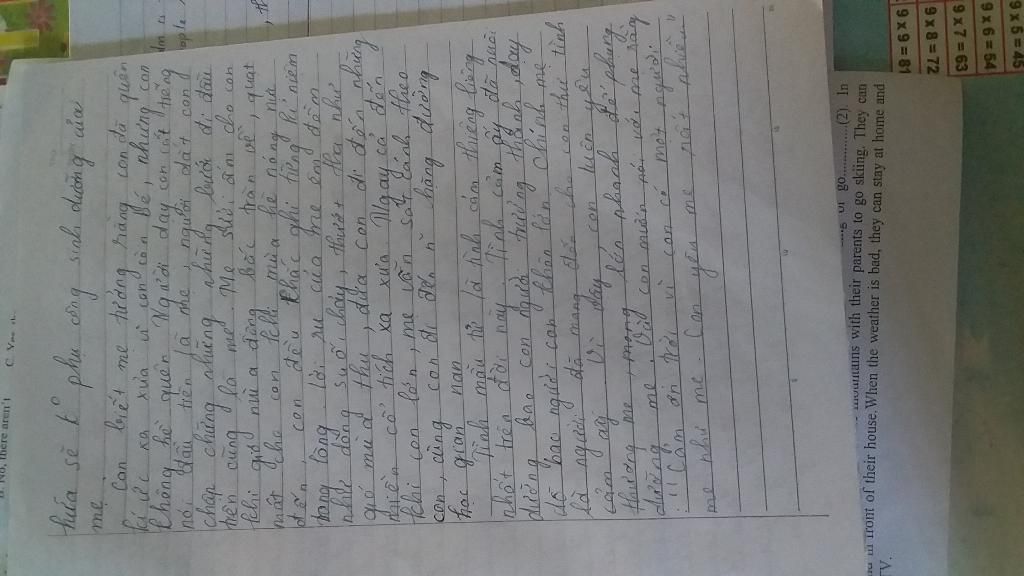 hứa sẽ k° phụ công sinh dưỡng của
mẹ.
Con biết mẹ tưởng rằng con đã quên
kí ức xa xưa vì con còn bé, nhưng con
không hề quên. Người dạy con cất tiếng
nói đầu tiên là mẹ, người dắt con đi
chập chững những những bước đi đầu
tiên cũng là mẹ. Mẹ sưởi ấm cho con
khi gió mùa đông bấc tràn về, quạt
mát cho con khi mùa hè nóng nực
đến, con đều khắc ghi từng kỉ niệm
trong lòng. Lời ru của mẹ êm đềm
như dòng suối chảy, thiết tha như
gió mùa thu, đưa con đi đến những
miền cổ tích xa xưa. Ngay cả đến
khi con lớn, mẹ vẫn sát cánh theo
con, cùng con đi đến hàng đường
học gian nan.
Tình mẫu tử là tình cảm thiêng liêng
nhất trên đời này. Tình cảm ấy đã nuôi
dưỡng bao con người trưởng thành, dạy
dỗ bao người con khôn lớn. Chính mẹ
là người đã mang đến cho con thứ tình
cảm ấy. Vì vậy, con luôn yêu
thương mẹ, mong lớn nhanh để phụng
dưỡng mẹ. Và con muốn nói với mẹ rằng
"Cảm ơn trời vì con có một người
mẹ như mẹ. Con yêu mẹ rất nhiều"
C. Yes, th
B. No, there aren't
of go............(2). In
mountains with their parents to go skiing. They can
in front of their house. When the weather is bad, they can stay at home and
TV.
9 x 5 = 45
9 x 6 = 54
9 x 7 = 63
9 x 8 = 72
9 x 9 = 81